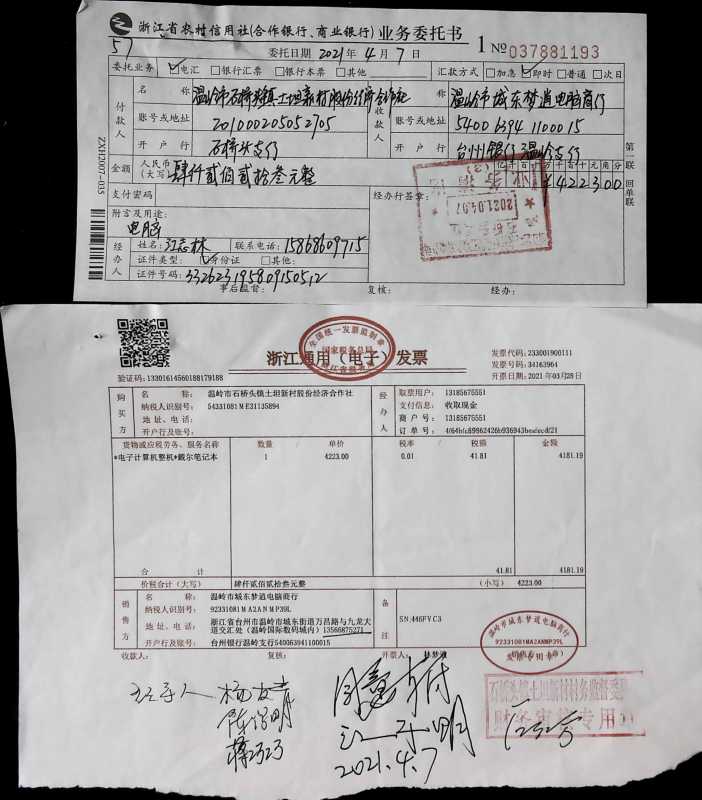 浙江省农村信用社(合作银行、商业银行)业务委托书
57
委托日期 2021年4月7日
1 №037881193
委托业务 ☑电汇 □银行汇票 □银行本票 □其他
汇款方式 □加急 ☑即时 □普通 □次日
付款人
名 称 温岭市石桥头镇土坦新村股份经济合作社
账号或地址 201000205052705
开户行 石桥头支行
收款人
名 称 温岭市城东梦逍电脑商行
账号或地址 540063941100015
开户行 台州银行温岭支行
金额 人民币(大写) 肆仟贰佰贰拾叁元整
亿千百十万千百十元角分
¥422300
支付密码
经办行签章:
2021.04.07
附言及用途:
电脑
经办人
姓名: 江志林 联系电话: 15868609715
证件类型: ☑身份证 □其他:
证件号码: 332623195809150512
事后监督: 复核: 经办:
第一联 回单联
ZXH2007-035
浙江通用(电子)发票
全国统一发票监制章
国家税务总局
浙江省税务局
验证码: 13301614560188179188
发票代码: 233001900111
发票号码: 34163964
开票日期: 2021年03月28日
购买方
名 称: 温岭市石桥头镇土坦新村股份经济合作社
纳税人识别号: 54331081ME31135894
地 址、电 话:
开户行及账号:
经办人
取票用户: 13185675551
支付信息: 收取现金
商 户 号: 13185675551
订 单 号:
货物或应税劳务、服务名称 数量 单价 税率 税额 金额
*电子计算机整机*戴尔笔记本 1 4223.00 0.01 41.81 4181.19
合 计 41.81 4181.19
价税合计(大写) 肆仟贰佰贰拾叁元整 (小写) 4223.00
销售方
名 称: 温岭市城东梦逍电脑商行
纳税人识别号: 92331081MA2ANMP39L
地址、电话: 浙江省台州市温岭市城东街道万昌路与九龙大道交汇处(温岭国际数码城内) 13566875271
开户行及账号: 台州银行温岭支行540063941100015
备注
SN:446FVC3
温岭市城东梦逍电脑商行
92331081MA2ANMP39L
发票专用章
收款人: 复核: 开票人: 林梦逍
经手人
陈浴明
2021.4.7
石桥头镇土坦新村村务监督委员会
财务审核专用章